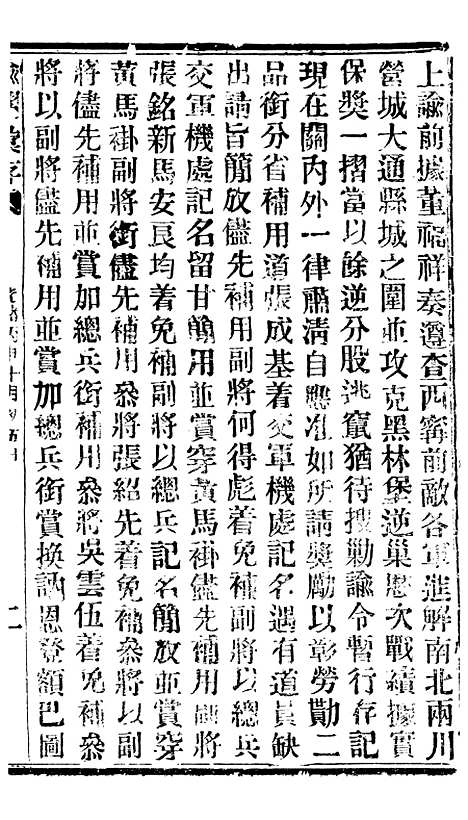 上諭前據董福祥奏遵查西寗前敵各軍進解南北兩川
營城大通縣城之圍並攻克黑林堡逆巢悤次戰績據實
保獎一摺當以餘逆分股逃竄猶待搜勦諭令暫行存記
現在關內外一律肅淸自應准如所請獎勵以彰勞勩二
品銜分省補用道張成基着交軍機處記名遇有道員缺
出請旨簡放儘先補用副將何得彪着免補副將以總兵
交軍機處記名留甘簡用並賞穿黃馬褂儘先補用副將
張銘新馬安良均着免補副將以總兵記名簡放並賞穿
黃馬褂副將銜儘先補用叅將張紹先着免補叅將以副
將儘先補用並賞加總兵銜補用叅將吳雲伍着免補叅
將以副將儘先補用並賞加總兵銜賞換訥恩登額巴圖
諭摺彙存
光緒丙申十月初五日
二